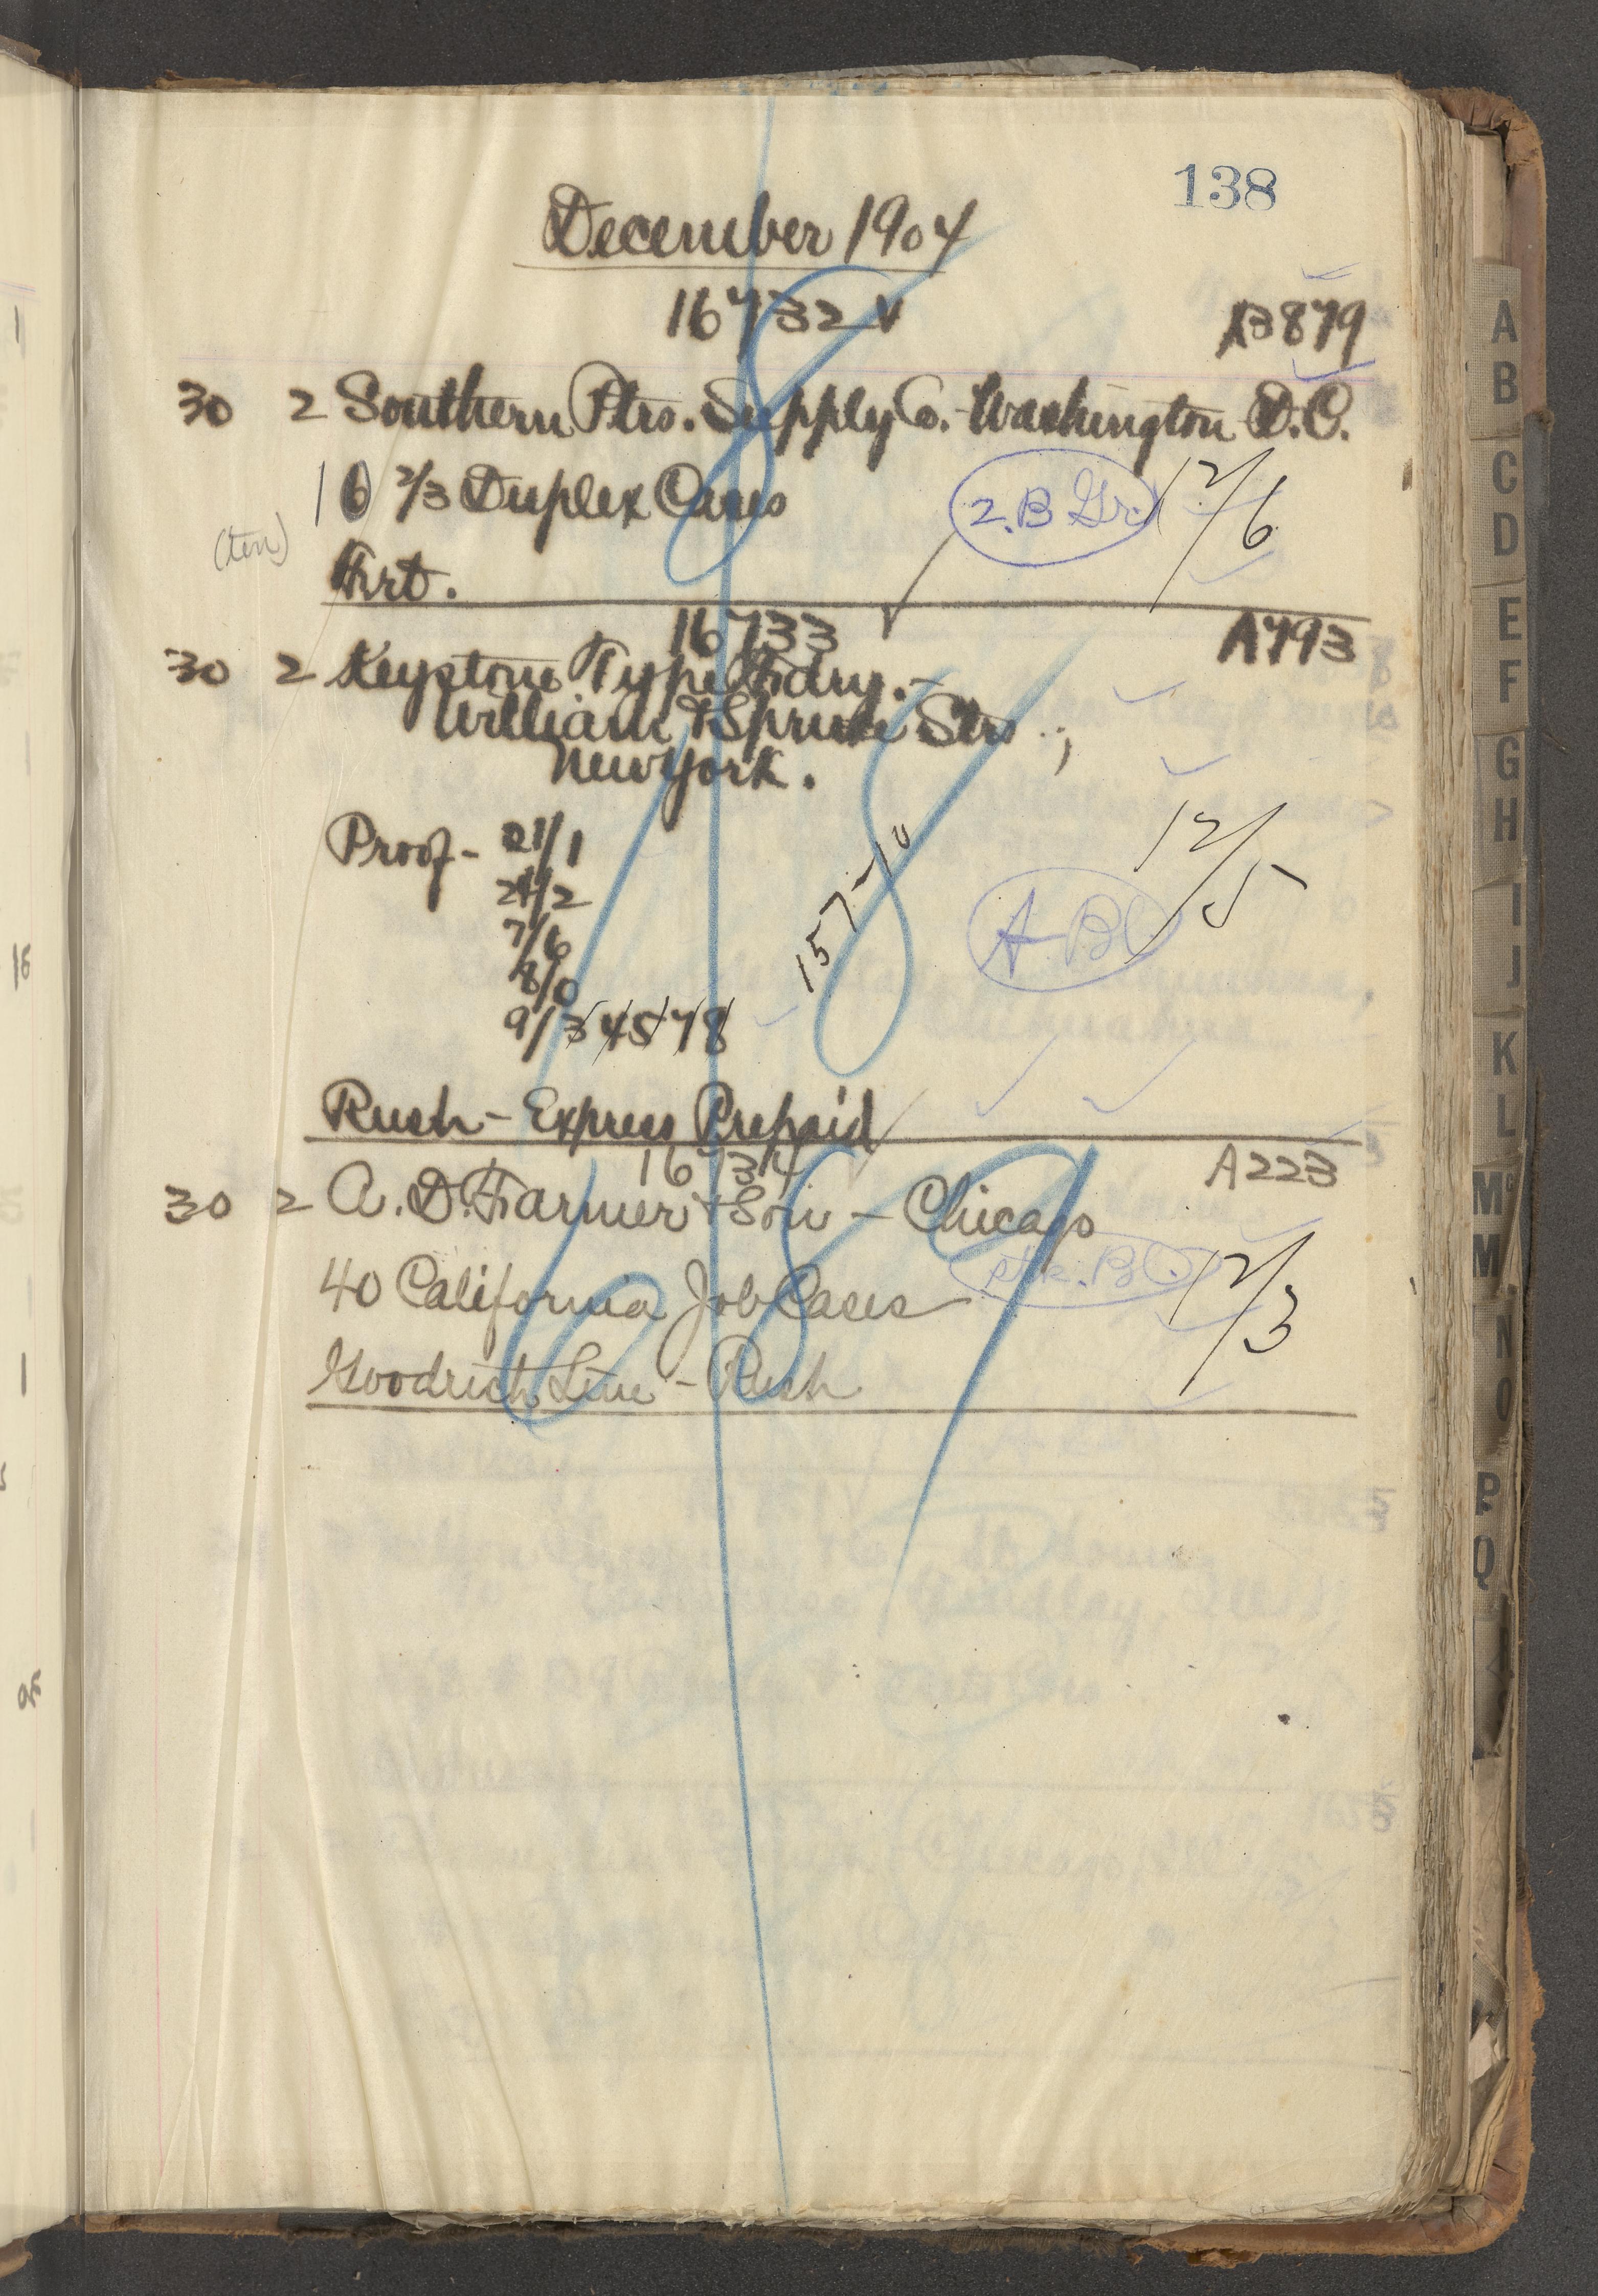 138
December 1904
16732 ✓ A3879
30 2 Southern Ptrs. Supply Co. - Washington D.C.
10 2/3 Duplex Cases 2.B Gr. 12/6
(ten)
Frt.
16733 A793
30 2 Keystone Type Fdry. -
William & Spruce Strs.,
New York.
Proof - 21/1 12/5
21/2
7/6 157-10 A-BC
8/0
9/3 4 5 7 8
Rush - Express Prepaid
16734 A223
30 2 A. D. Farmer & Son - Chicago
40 California Job Cases 12/3
Goodrich Line - Rush
A
B
C
D
E
F
G
H
I
J
K
L
Mc
M
N
O
P
Q